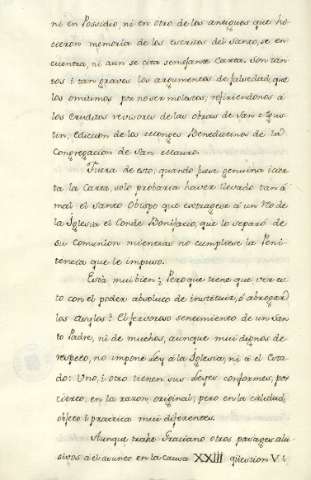 ni en Possidio, ni en otro de los antiguos que hi-
cieron memoria de los escritos del Santo, se en-
cuentra, ni aun se cita semejante Carta. Son tan-
tos i tan graves los argumentos de falsedad, que
los omitimos por no ser molestos, refiriendonos á
los eruditos revisores de las obras de San Agus-
tin, Edicion de los Monges Benedictinos de la
Congregacion de San Mauro.
Fuera de esto, quando fuese genuina i cier-
ta la Carta, solo probaria haver llevado tan á
mal el Santo Obispo que extragese á un Reo de
la Iglesia el Conde Bonifacio, que lo separó de
su Comunion mientras no cumpliese la Peni-
tencia que le impuso.
Está mui bien; Pero que tiene que ver es-
to con el poder absoluto de instituir, ó abrogar
los asylos? El fervoroso sentimiento de un San-
to Padre, ni de muchos, aunque mui dignos de
respeto, no impone Ley á la Iglesia, ni á el Esta-
do: Uno, i otro tienen sus Leyes conformes, por
cierto, en la razon original; pero en la calidad,
objeto i practica mui diferentes.
Aunque trahe Graciano otros parages alu-
sivos á el asunto en la causa XXIII question V.